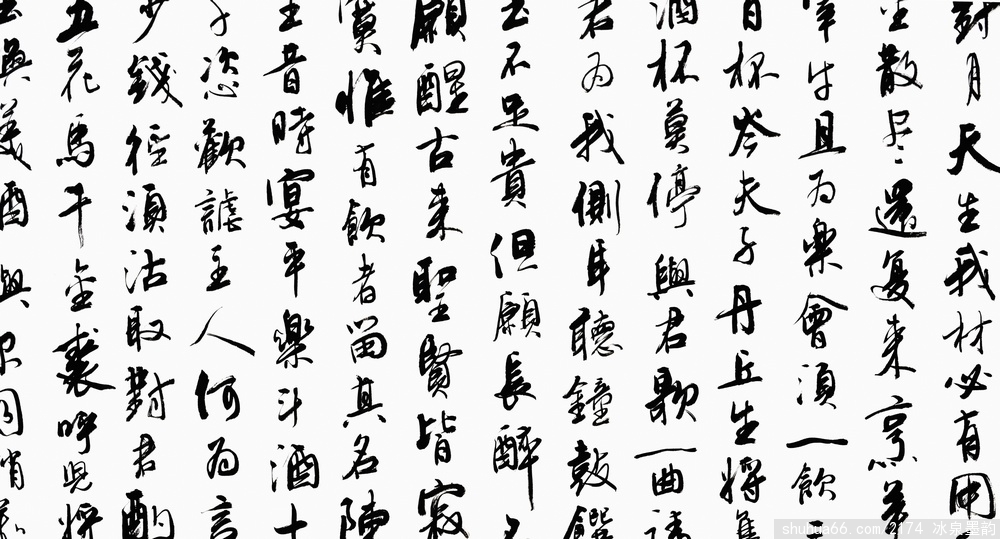 對月天生我材必有用
金散尽還复来烹羊
宰牛且为樂會須一飲
百杯岑夫子丹丘生將進
酒杯莫停與君歌一曲請
君为我側耳聽鐘鼓饌
玉不足貴但願長醉不
願醒古来聖賢皆寂
寞惟有飲者留其名陳
王昔時宴平樂斗酒十
千恣歡謔主人何为言
少錢徑須沽取對君酌
五花馬千金裘呼児將
出與美酒與尔同銷萬
shuhua66.com/2174 冰泉墨韵